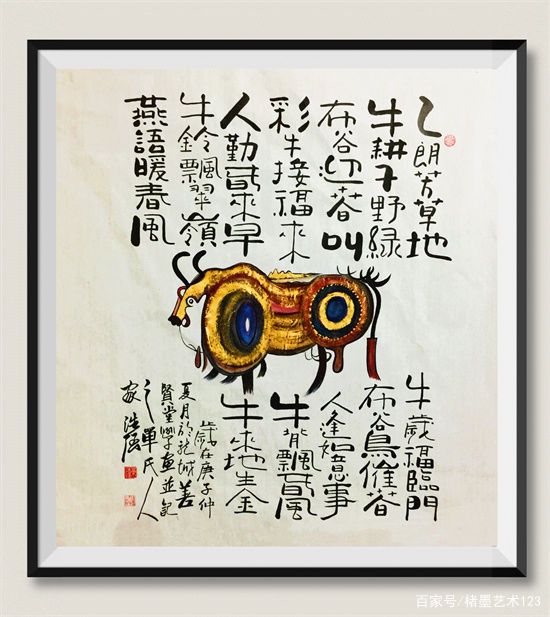 乙朗芳草地
牛耕野緑
布谷迎春叫
彩牛接福來
人勤春來早
牛鈴飄翠嶺
燕語暖春風
牛歲福臨門
布谷鳥催春
人逢如意事
牛飄風
牛來地生金
歲在庚子仲
夏月於龍城善
賢堂學畫並記
之單氏人
家浩
百家号/楮墨艺术123